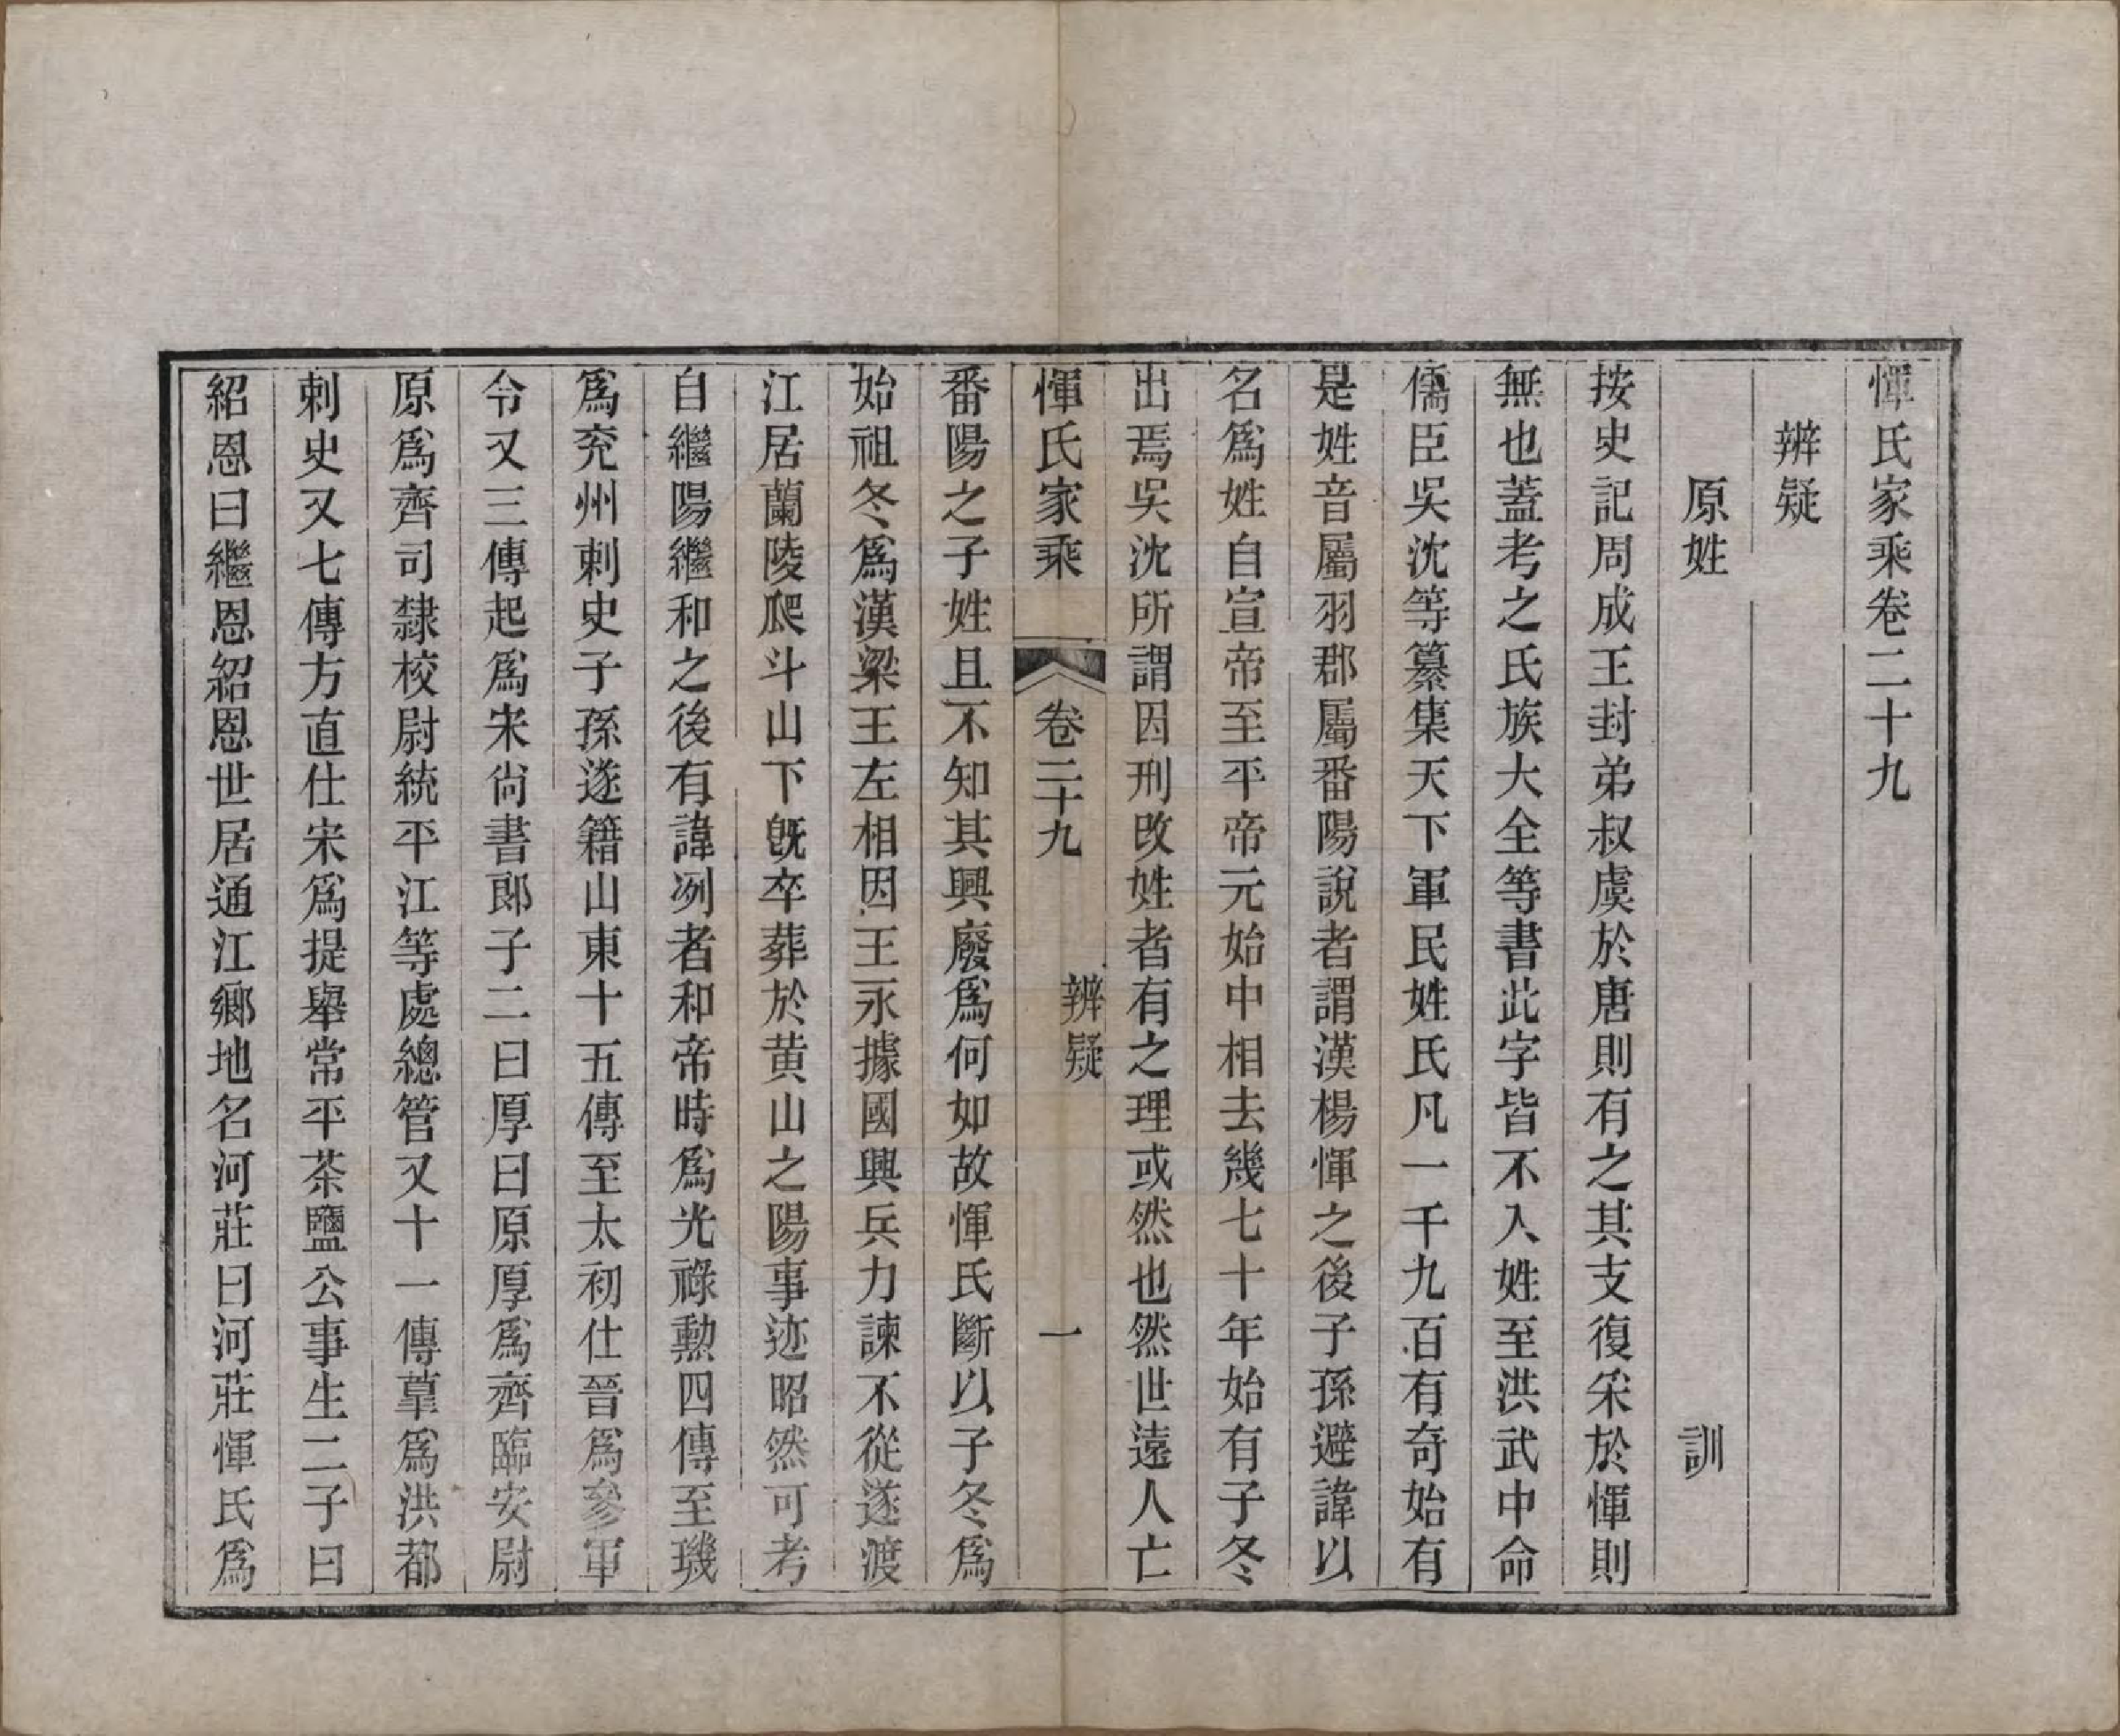 惲氏家乘卷二十九
辨疑
原姓　訓
按史記周成王封弟叔虞於唐則有之其支復采於惲則
無也蓋考之氏族大全等書此字皆不入姓至洪武中命
儒臣吳沈等纂集天下軍民姓氏凡一千九百有奇始有
是姓音屬羽郡屬番陽說者謂漢楊惲之後子孫避諱以
名爲姓自宣帝至平帝元始中相去幾七十年始有子冬
出焉吳沈所謂因刑改姓者有之理或然也然世遠人亡
惲氏家乘　卷二十九　辨疑　一
番陽之子姓且不知其興廢爲何如故惲氏斷以子冬爲
始祖冬爲漢梁王左相因王永據國興兵力諫不從遂渡
江居蘭陵爬斗山下旣卒葬於黄山之陽事迹昭然可考
自繼陽繼和之後有諱冽者和帝時爲光祿勲四傳至璣
爲兖州刺史子孫遂籍山東十五傳至太初仕晉爲參軍
令又三傳起爲宋尙書郞子二曰厚曰原厚爲齊臨安尉
原爲齊司隸校尉統平江等處總管又十一傳葟爲洪都
刺史又七傳方直仕宋爲提舉常平茶鹽公事生二子曰
紹恩曰繼恩紹恩世居通江鄉地名河莊曰河莊惲氏爲